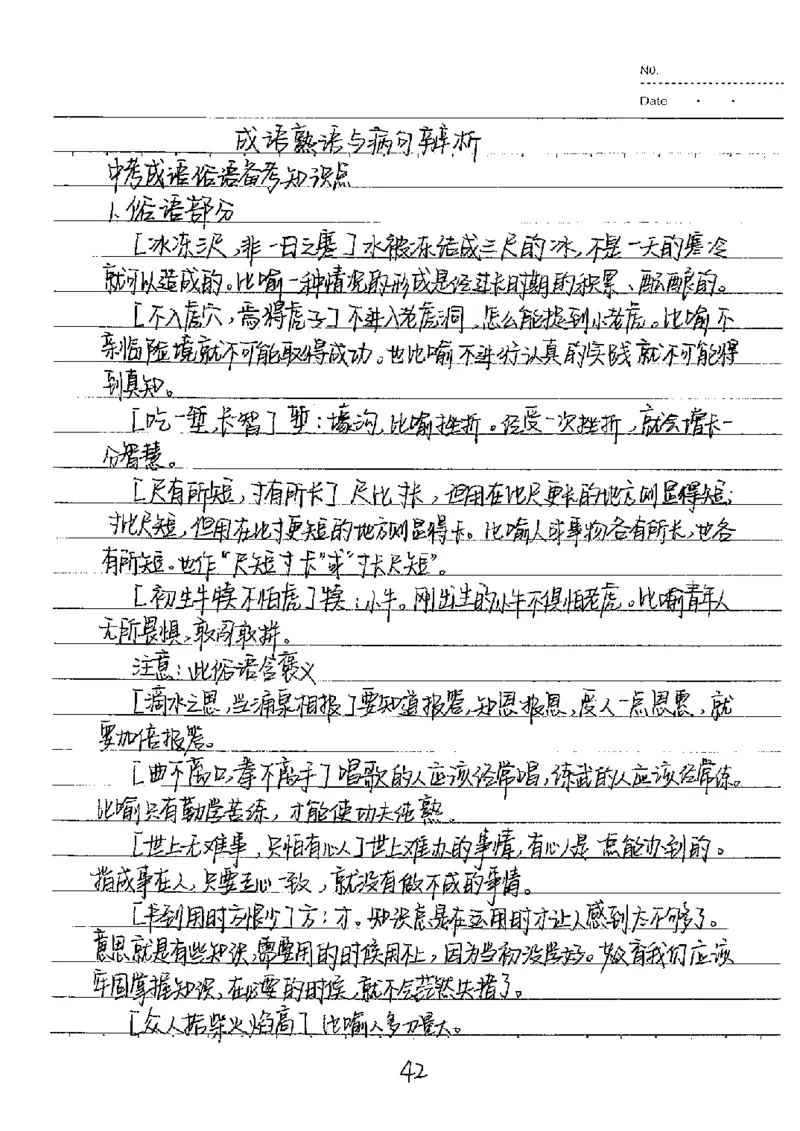 No.
Date
成语熟语与病句辨析
中考成语俗语备考知识点
1.俗语部分
[冰冻三尺,非一日之寒]水被冻结成三尺的冰,不是一天的寒冷
就可以造成的。比喻一种情况的形成是经过长时期的积累、酝酿的。
[不入虎穴,焉得虎子]不进入老虎洞,怎么能捉到小老虎。比喻不
亲临险境就不可能取得成功。也比喻不进行认真的实践就不可能得
到真知。
[吃一堑长智]堑:壕沟,比喻挫折。经受一次挫折,就会增长一
分智慧。
[尺有所短,寸有所长]尺比寸长,但用在比尺更长的地方则显得短;
寸比尺短,但用在比寸更短的地方则显得长。比喻人或事物各有所长,也各
有所短。也作“尺短寸长”或“寸长尺短”。
[初生牛犊不怕虎]犊:小牛。刚出生的小牛不惧怕老虎。比喻青年人
无所畏惧,敢闯敢拼。
注意:此俗语含褒义
[滴水之恩,当涌泉相报]要知道报答,知恩报恩,受人一点恩惠,就
要加倍报答。
[曲不离口,拳不离手]唱歌的人应该经常唱,练武的人应该经常练。
比喻只有勤学苦练,才能使功夫纯熟。
[世上无难事,只怕有心人]世上难办的事情,有心人是 能办到的。
指成事在人,只要 心一致,就没有做不成的事情。
[ 到用时方恨少]方:才。知识总是在运用时才让人感到太不够了。
意思就是有些知识,需要用的时候用不上,因为当初没学好。教育我们应该
牢固掌握知识,在必要的时候,就不会茫然失措了。
[众人拾柴火焰高]比喻人多力量大。
42